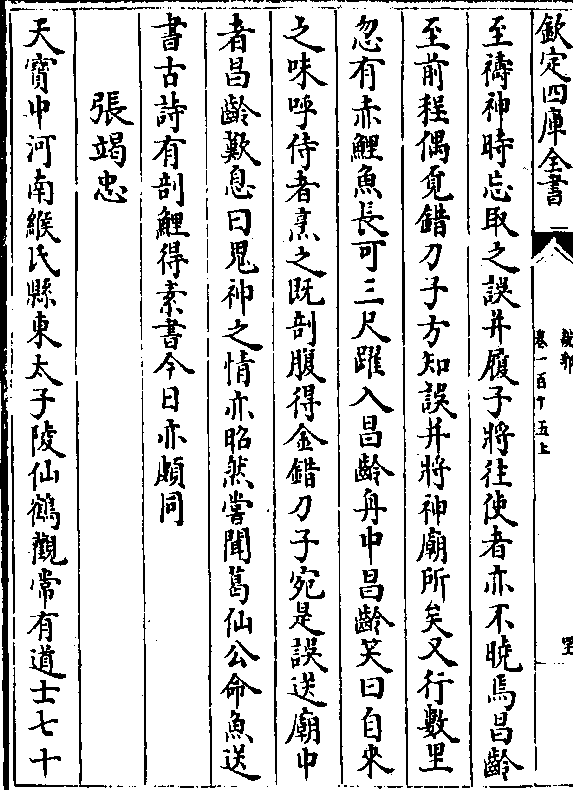 欽定四庫全書
說郛
卷一百十五上
至禱神時忘取之誤并履子將往使者亦不曉焉昌齡
至前程偶覓錯刀子方知誤并將神廟所矣又行數里
忽有赤鯉魚長可三尺躍入昌齡舟中昌齡笑曰自來
之味呼侍者烹之既剖腹得金錯刀子宛是誤送廟中
者昌齡歎息曰鬼神之情亦昭然嘗聞葛仙公命魚送
書古詩有剖鯉得素書今日亦頗同
張竭忠
天寶中河南緱氏縣東太子陵仙鶴觀常有道士七十